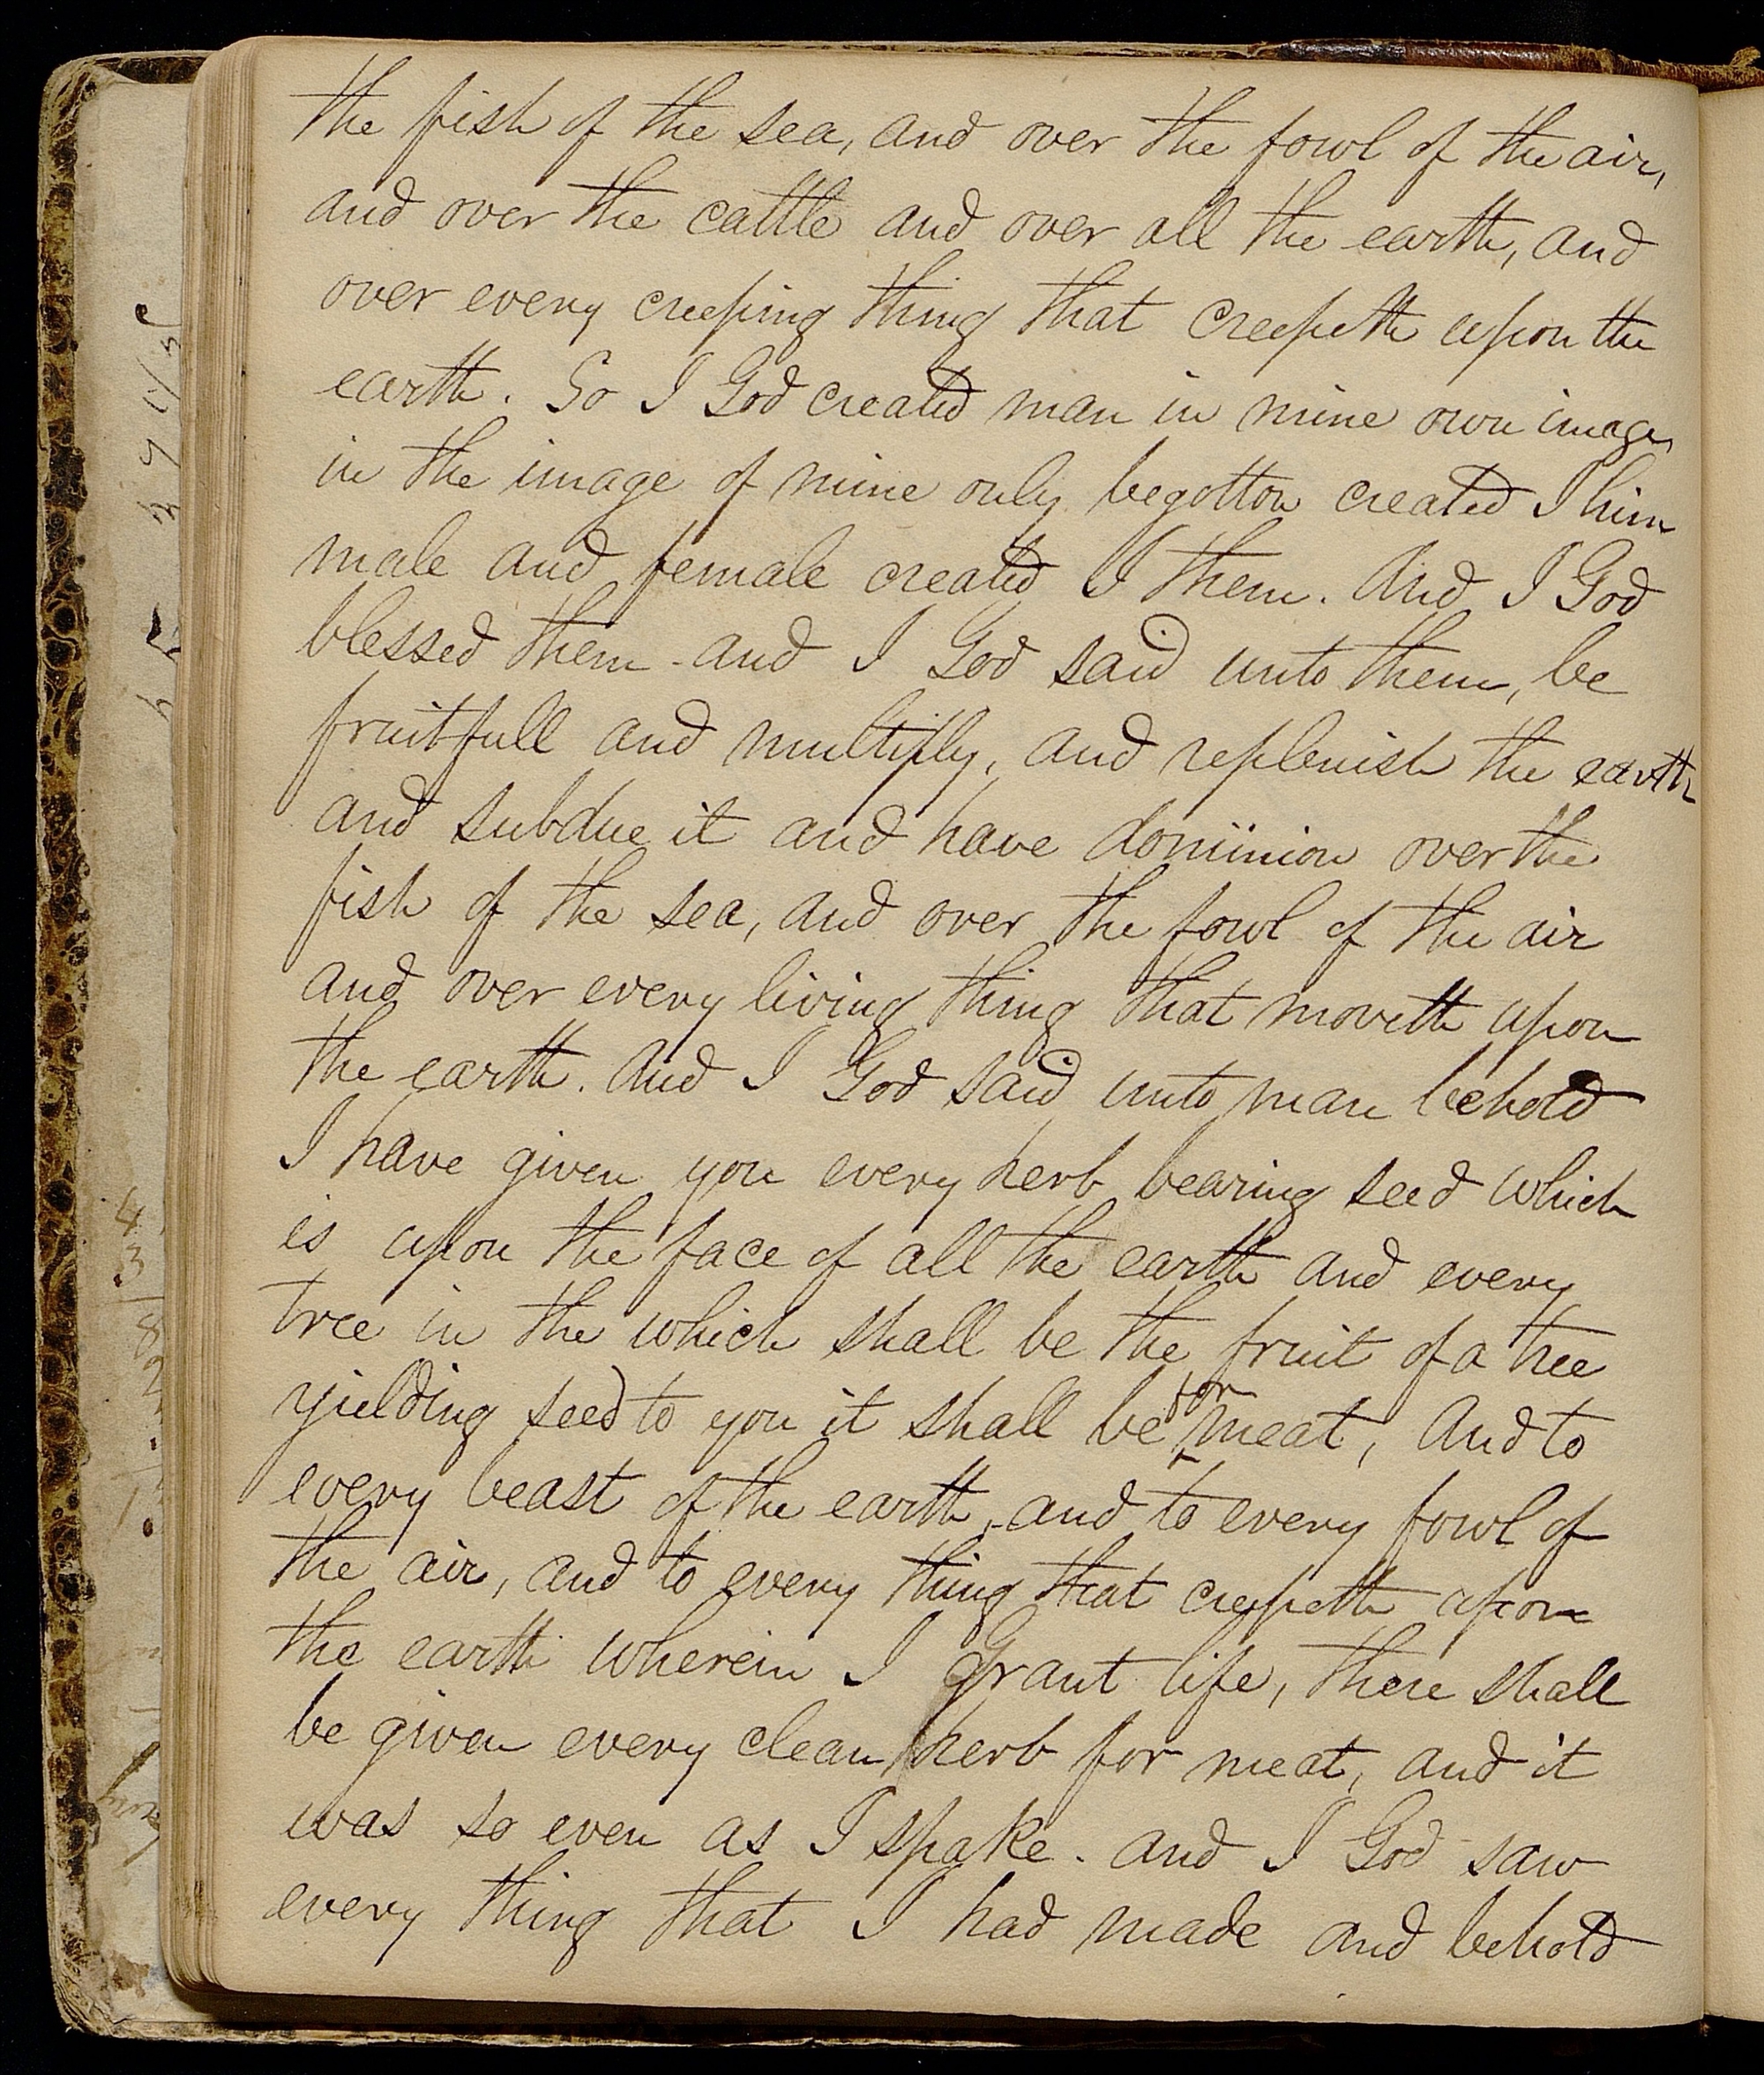 the fish of the sea, and over the fowl of the air,
and over the cattle and over all the earth, and
over every creeping thing that creepeth upon the
earth. So I God created man in mine own image,
in the image of mine only begotton created I him
male and female created I them. And I God
blessed them and I God said unto them, be
fruitfull and multiply, and replenish the earth
and subdue it and have dominion over the
fish of the sea, and over the fowl of the air
and over every living thing that moveth upon
the earth. And I God said unto man behold
I have given you every herb bearing seed which
is upon the face of all the earth and every
tree in the which shall be the fruit of a tree
yielding seed to you it shall be for meat, And to
every beast of the earth, and to every fowl of
the air, and to every thing that creepeth upon
the earth wherein I grant life, there shall
be given every clean herb for meat, and it
was so even as I spake. and I God saw
every thing that I had made and behold
4
3
8
2